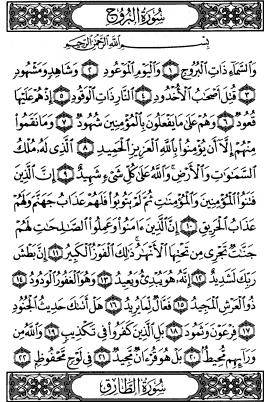 سُورَةُ البُرُوجِ
بِسْمِ اللَّهِ الرَّحْمَٰنِ الرَّحِيمِ
وَالسَّمَاءِ ذَاتِ الْبُرُوجِ ١ وَالْيَوْمِ الْمَوْعُودِ ٢ وَشَاهِدٍ وَمَشْهُودٍ
٣ قُتِلَ أَصْحَابُ الْأُخْدُودِ ٤ النَّارِ ذَاتِ الْوَقُودِ ٥ إِذْ هُمْ عَلَيْهَا
قُعُودٌ ٦ وَهُمْ عَلَىٰ مَا يَفْعَلُونَ بِالْمُؤْمِنِينَ شُهُودٌ ٧ وَمَا نَقَمُوا
مِنْهُمْ إِلَّا أَن يُؤْمِنُوا بِاللَّهِ الْعَزِيزِ الْحَمِيدِ ٨ الَّذِي لَهُ مُلْكُ
السَّمَاوَاتِ وَالْأَرْضِ وَاللَّهُ عَلَىٰ كُلِّ شَيْءٍ شَهِيدٌ ٩ إِنَّ الَّذِينَ
فَتَنُوا الْمُؤْمِنِينَ وَالْمُؤْمِنَاتِ ثُمَّ لَمْ يَتُوبُوا فَلَهُمْ عَذَابُ جَهَنَّمَ وَلَهُمْ
عَذَابُ الْحَرِيقِ ١٠ إِنَّ الَّذِينَ آمَنُوا وَعَمِلُوا الصَّالِحَاتِ لَهُمْ
جَنَّاتٌ تَجْرِي مِن تَحْتِهَا الْأَنْهَارُ ذَٰلِكَ الْفَوْزُ الْكَبِيرُ ١١ إِنَّ بَطْشَ
رَبِّكَ لَشَدِيدٌ ١٢ إِنَّهُ هُوَ يُبْدِئُ وَيُعِيدُ ١٣ وَهُوَ الْغَفُورُ الْوَدُودُ ١٤
ذُو الْعَرْشِ الْمَجِيدُ ١٥ فَعَّالٌ لِّمَا يُرِيدُ ١٦ هَلْ أَتَاكَ حَدِيثُ الْجُنُودِ
١٧ فِرْعَوْنَ وَثَمُودَ ١٨ بَلِ الَّذِينَ كَفَرُوا فِي تَكْذِيبٍ ١٩ وَاللَّهُ مِن
وَرَائِهِم مُّحِيطٌ ٢٠ بَلْ هُوَ قُرْآنٌ مَّجِيدٌ ٢١ فِي لَوْحٍ مَّحْفُوظٍ ٢٢
سُورَةُ الطَّارِقِ